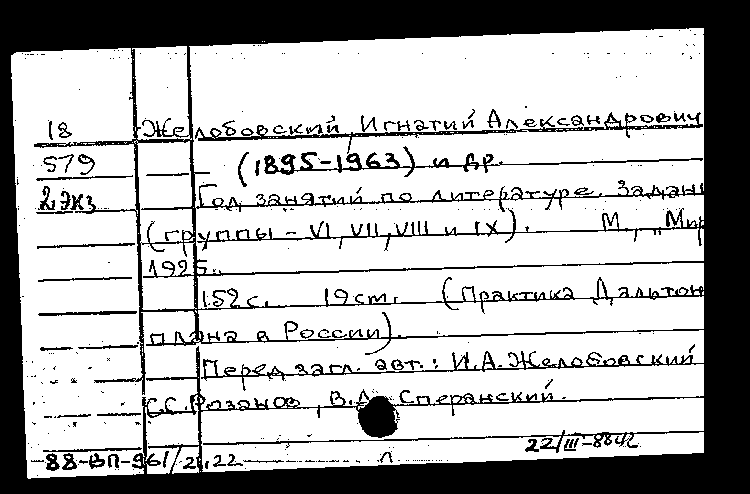 18 Желобовский, Игнатий Александрович
579 (1895-1963) и др.
2 экз Год занятий по литературе. Задан
(группы - VI, VII, VIII и IX). М., „Мир
1925.
152 с. 19 cm. (Практика Дальтон
плана в России).
Перед загл. авт.: И.А. Желобовский
С.С. Розанов, В.Д. Сперанский.
88-ВП-961/ 22/III-88
л